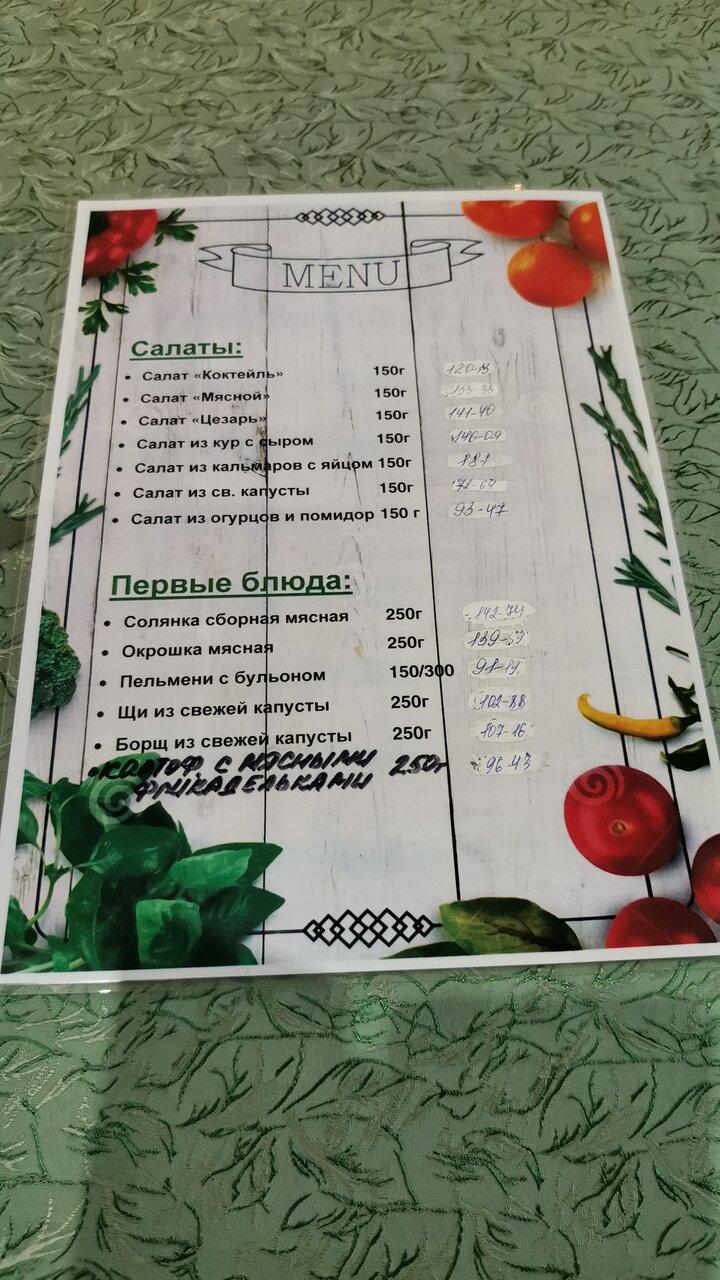 MENU
Салаты:
• Салат «Коктейль» 150г
• Салат «Мясной» 150г 153-33
• Салат «Цезарь» 150г 141-40
• Салат из кур с сыром 150г 146-09
• Салат из кальмаров с яйцом 150г 181
• Салат из св. капусты 150г
• Салат из огурцов и помидор 150 г 93-47
Первые блюда:
• Солянка сборная мясная 250г 142-74
• Окрошка мясная 250г
• Пельмени с бульоном 150/300 91-19
• Щи из свежей капусты 250г 102-88
• Борщ из свежей капусты 250г 107-16
• КАРТОФ С МЯСНЫМИ 250г 96-43
ФРИКАДЕЛЬКАМИ